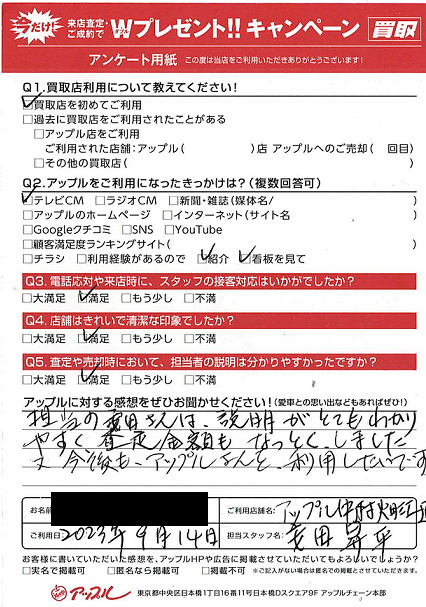 今だけ!
来店査定・ご成約で Wプレゼント!! キャンペーン 買取
アンケート用紙 この度は当店をご利用いただきありがとうございます!
Q1.買取店利用について教えてください!
☑買取店を初めてご利用
□過去に買取店をご利用されたことがある
□アップル店をご利用
ご利用された店舗:アップル( )店 アップルへのご売却( 回目)
□その他の買取店( )
Q2.アップルをご利用になったきっかけは?(複数回答可)
☑テレビCM □ラジオCM □新聞・雑誌(媒体名/ )
□アップルのホームページ □インターネット(サイト名 )
□Googleクチコミ □SNS □YouTube
□顧客満足度ランキングサイト( )
□チラシ □利用経験があるので ☑紹介 ☑看板を見て
Q3.電話応対や来店時に、スタッフの接客対応はいかがでしたか?
□大満足 ☑満足 □もう少し □不満
Q4.店舗はきれいで清潔な印象でしたか?
□大満足 ☑満足 □もう少し □不満
Q5.査定や売却時において、担当者の説明は分かりやすかったですか?
□大満足 ☑満足 □もう少し □不満
アップルに対する感想をぜひお聞かせください!(愛車との思い出などもあればぜひ!)
担当の さんは、説明がとてもわかり
やすく査定金額もなっとくしました
又今後も、アップルさんを、利用したいです
お名前
ご利用店舗名: アップル中村
ご利用日: 2023年9月14日 担当スタッフ名: 昇平
お客様に書いていただいた感想を、アップルHPや広告に掲載させていただいてもよろしいでしょうか?
□実名で掲載可 □匿名なら掲載可 □掲載不可 ※ご記入がない場合は匿名での掲載とさせていただきます。
アップル 東京都中央区日本橋1丁目16番11号日本橋Dスクエア9F アップルチェーン本部